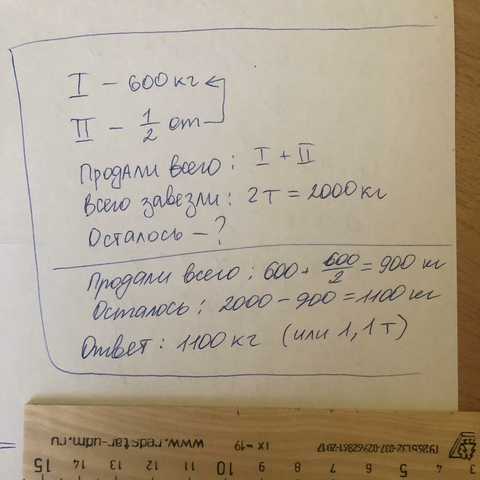 I – 600 кг
II – 1/2 от
Продали всего: I + II
Всего завезли: 2 т = 2000 кг
Осталось – ?
Продали всего: 600 + 600/2 = 900 кг
Осталось: 2000 – 900 = 1100 кг
Ответ: 1100 кг (или 1,1 т)
www.redstar-udm.ru
15 14 13 12 11 10 9 8 7 6 5 4 3